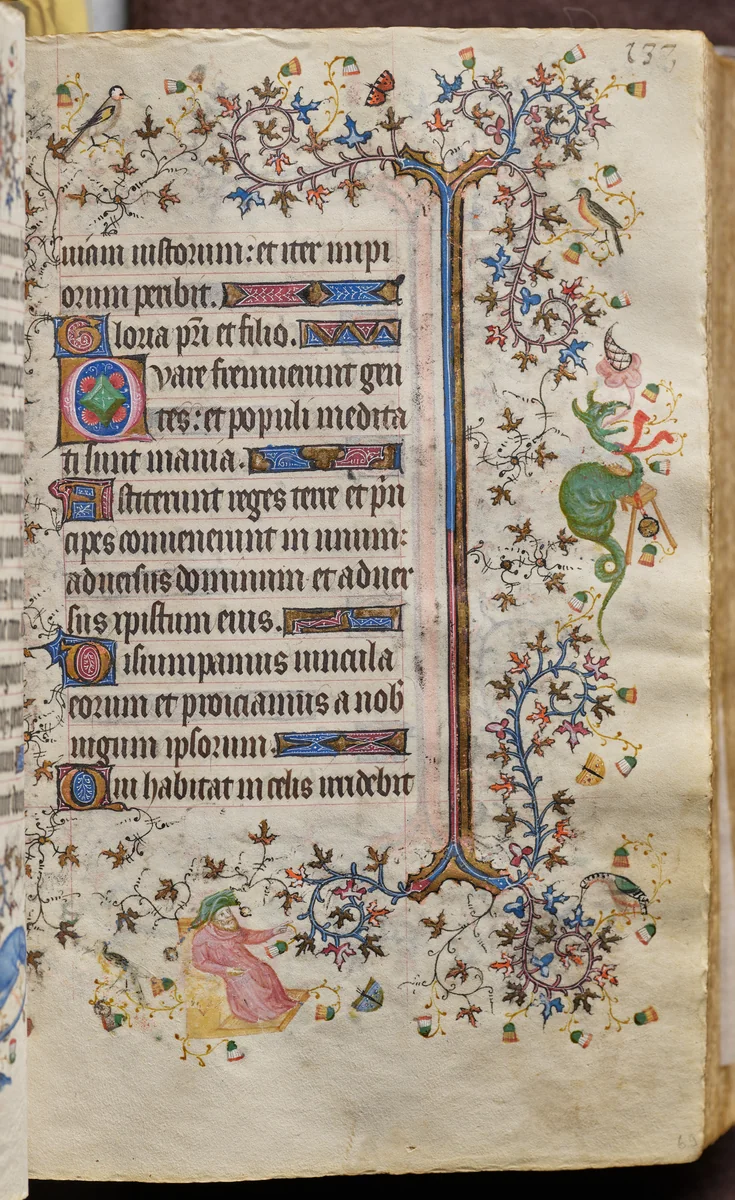 133
uiam iustorum: et iter impi
orum peribit.
Gloria pri et filio.
Quare fremuerunt gen
tes: et populi medita
ti sunt inania.
Astiterunt reges terre et prin
cipes conuenerunt in unum:
aduersus dominum et aduer
sus xpistum eius.
Disrumpamus uincula
eorum et proiciamus a nob
iugum ipsorum.
Qui habitat in celis irridebit
69